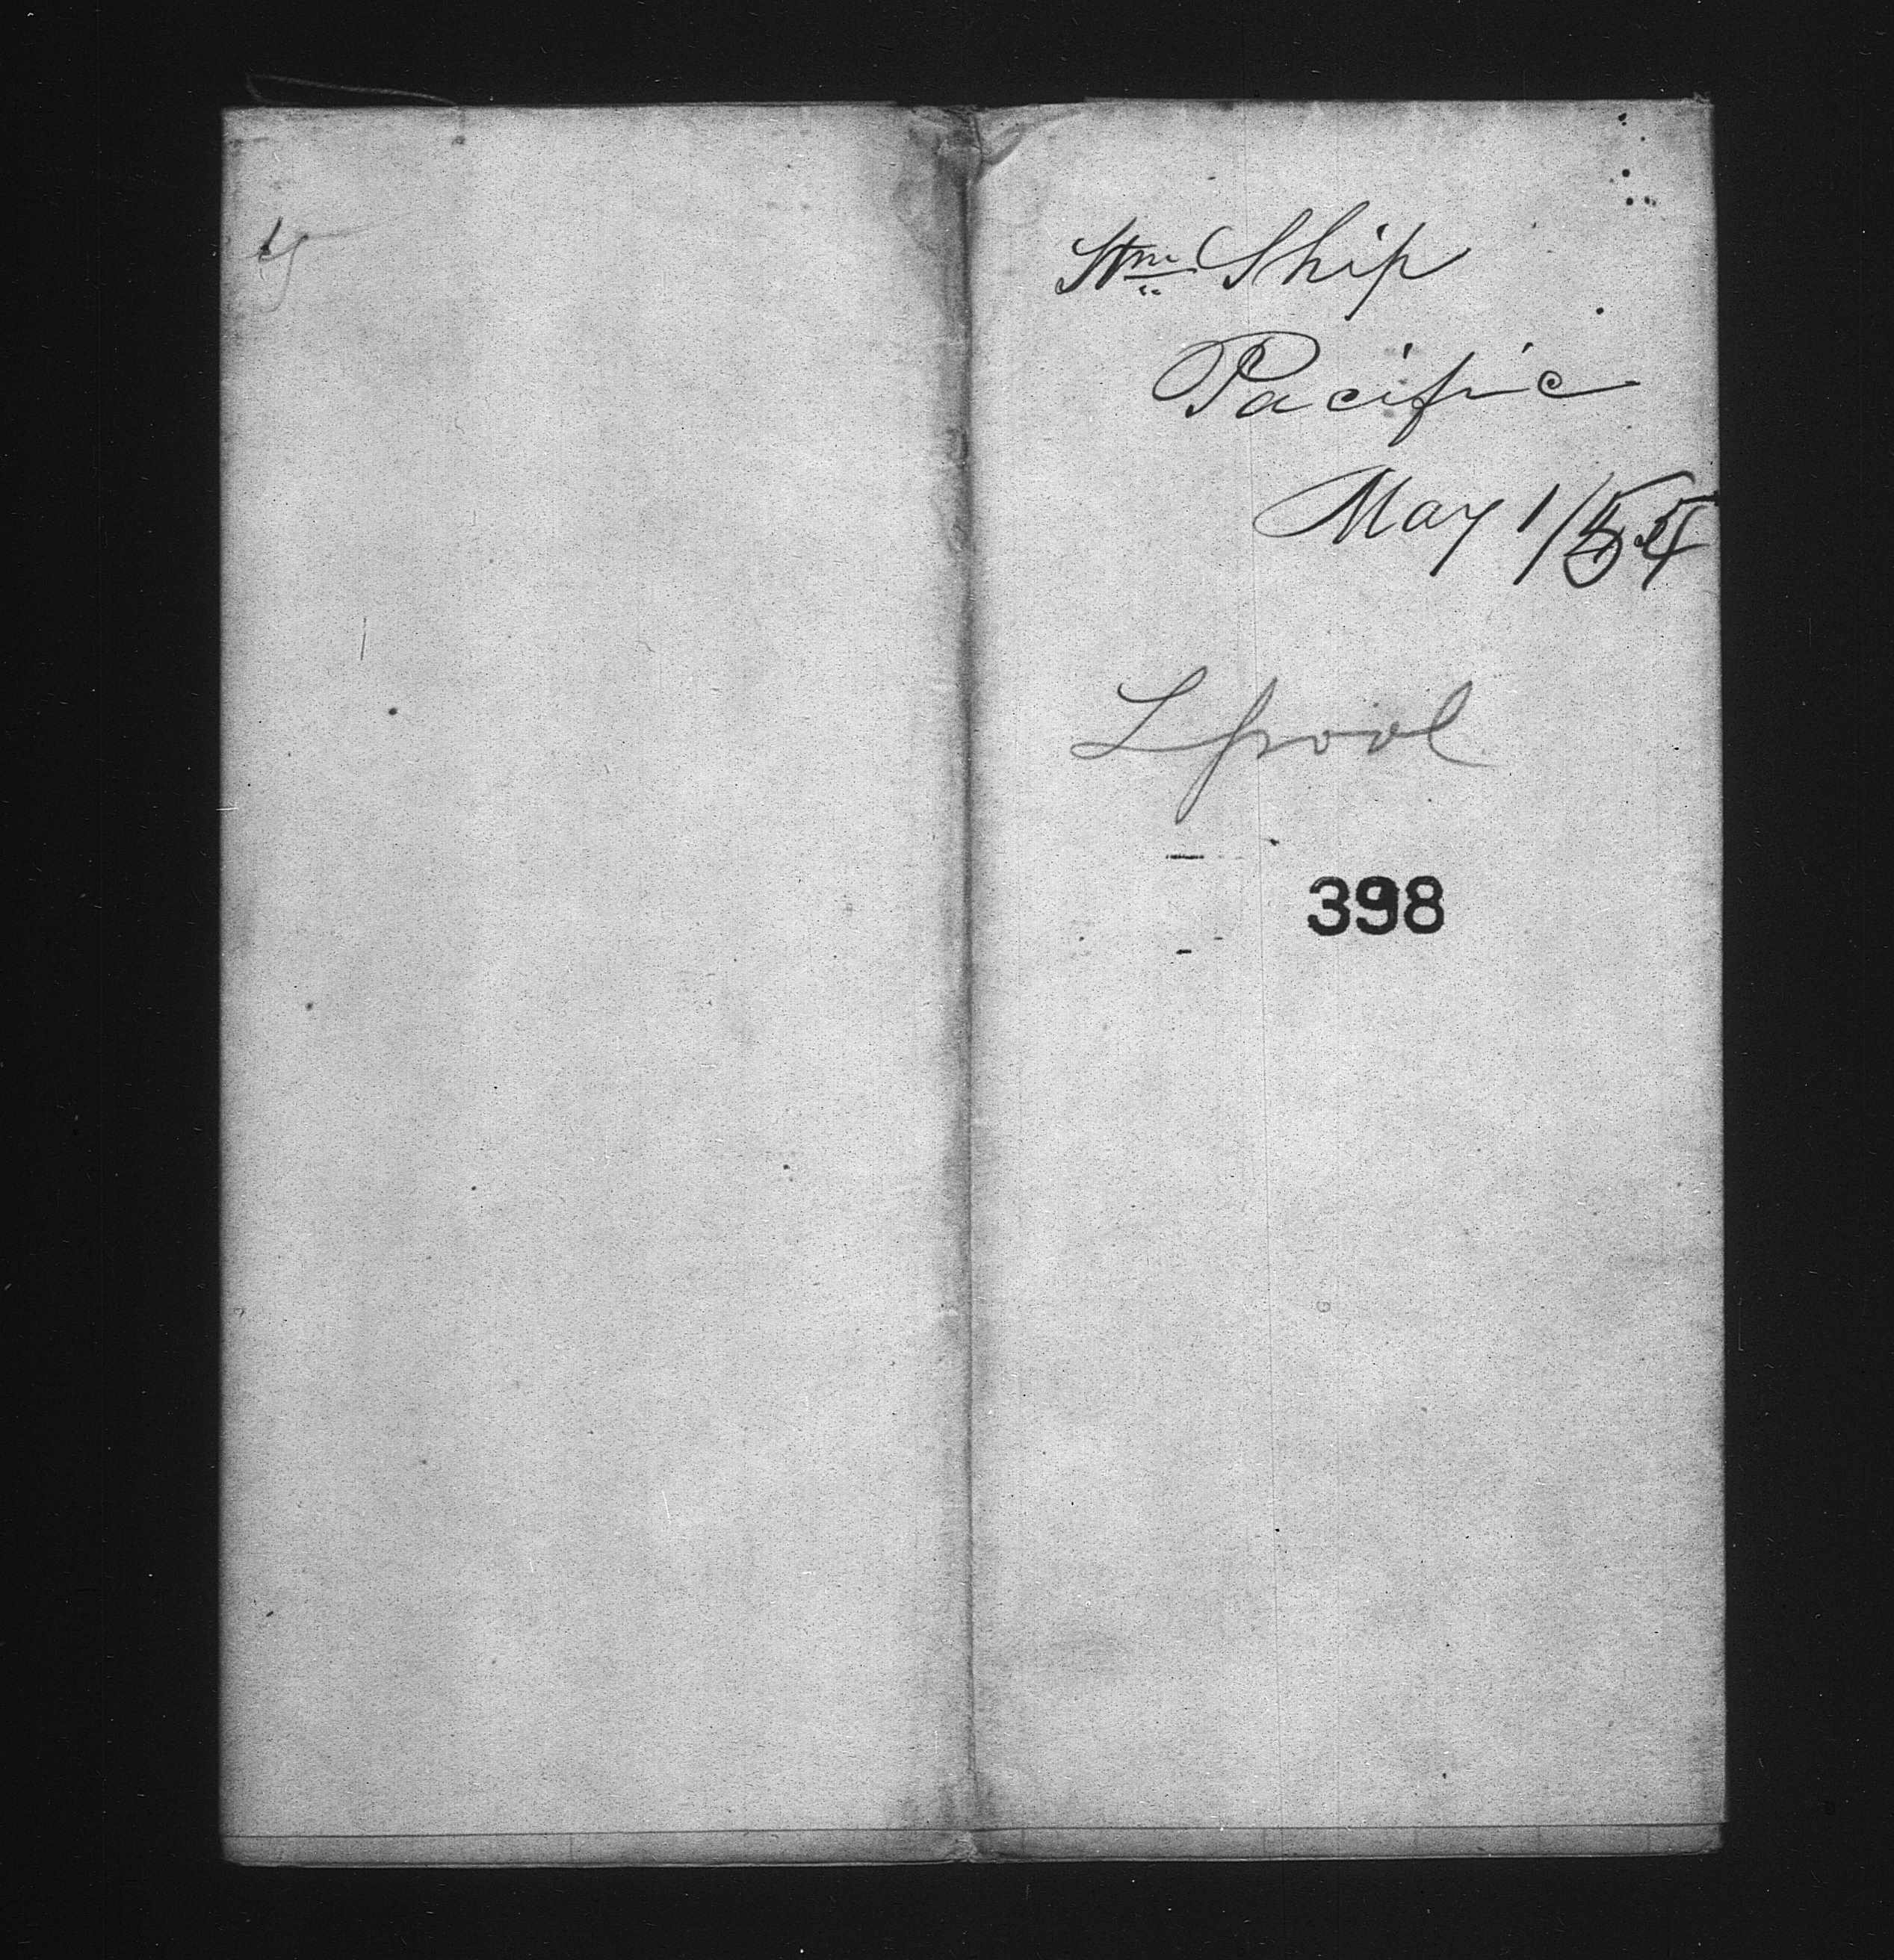 Stm Ship
Pacific
May 1/55
Lpool
398